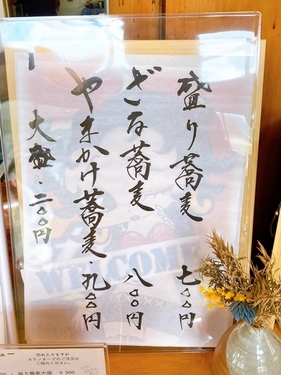 盛り蕎麦 七〇〇円
ざる蕎麦 八〇〇円
やまかけ蕎麦・九〇〇円
大盛・二〇〇円
WELCOME